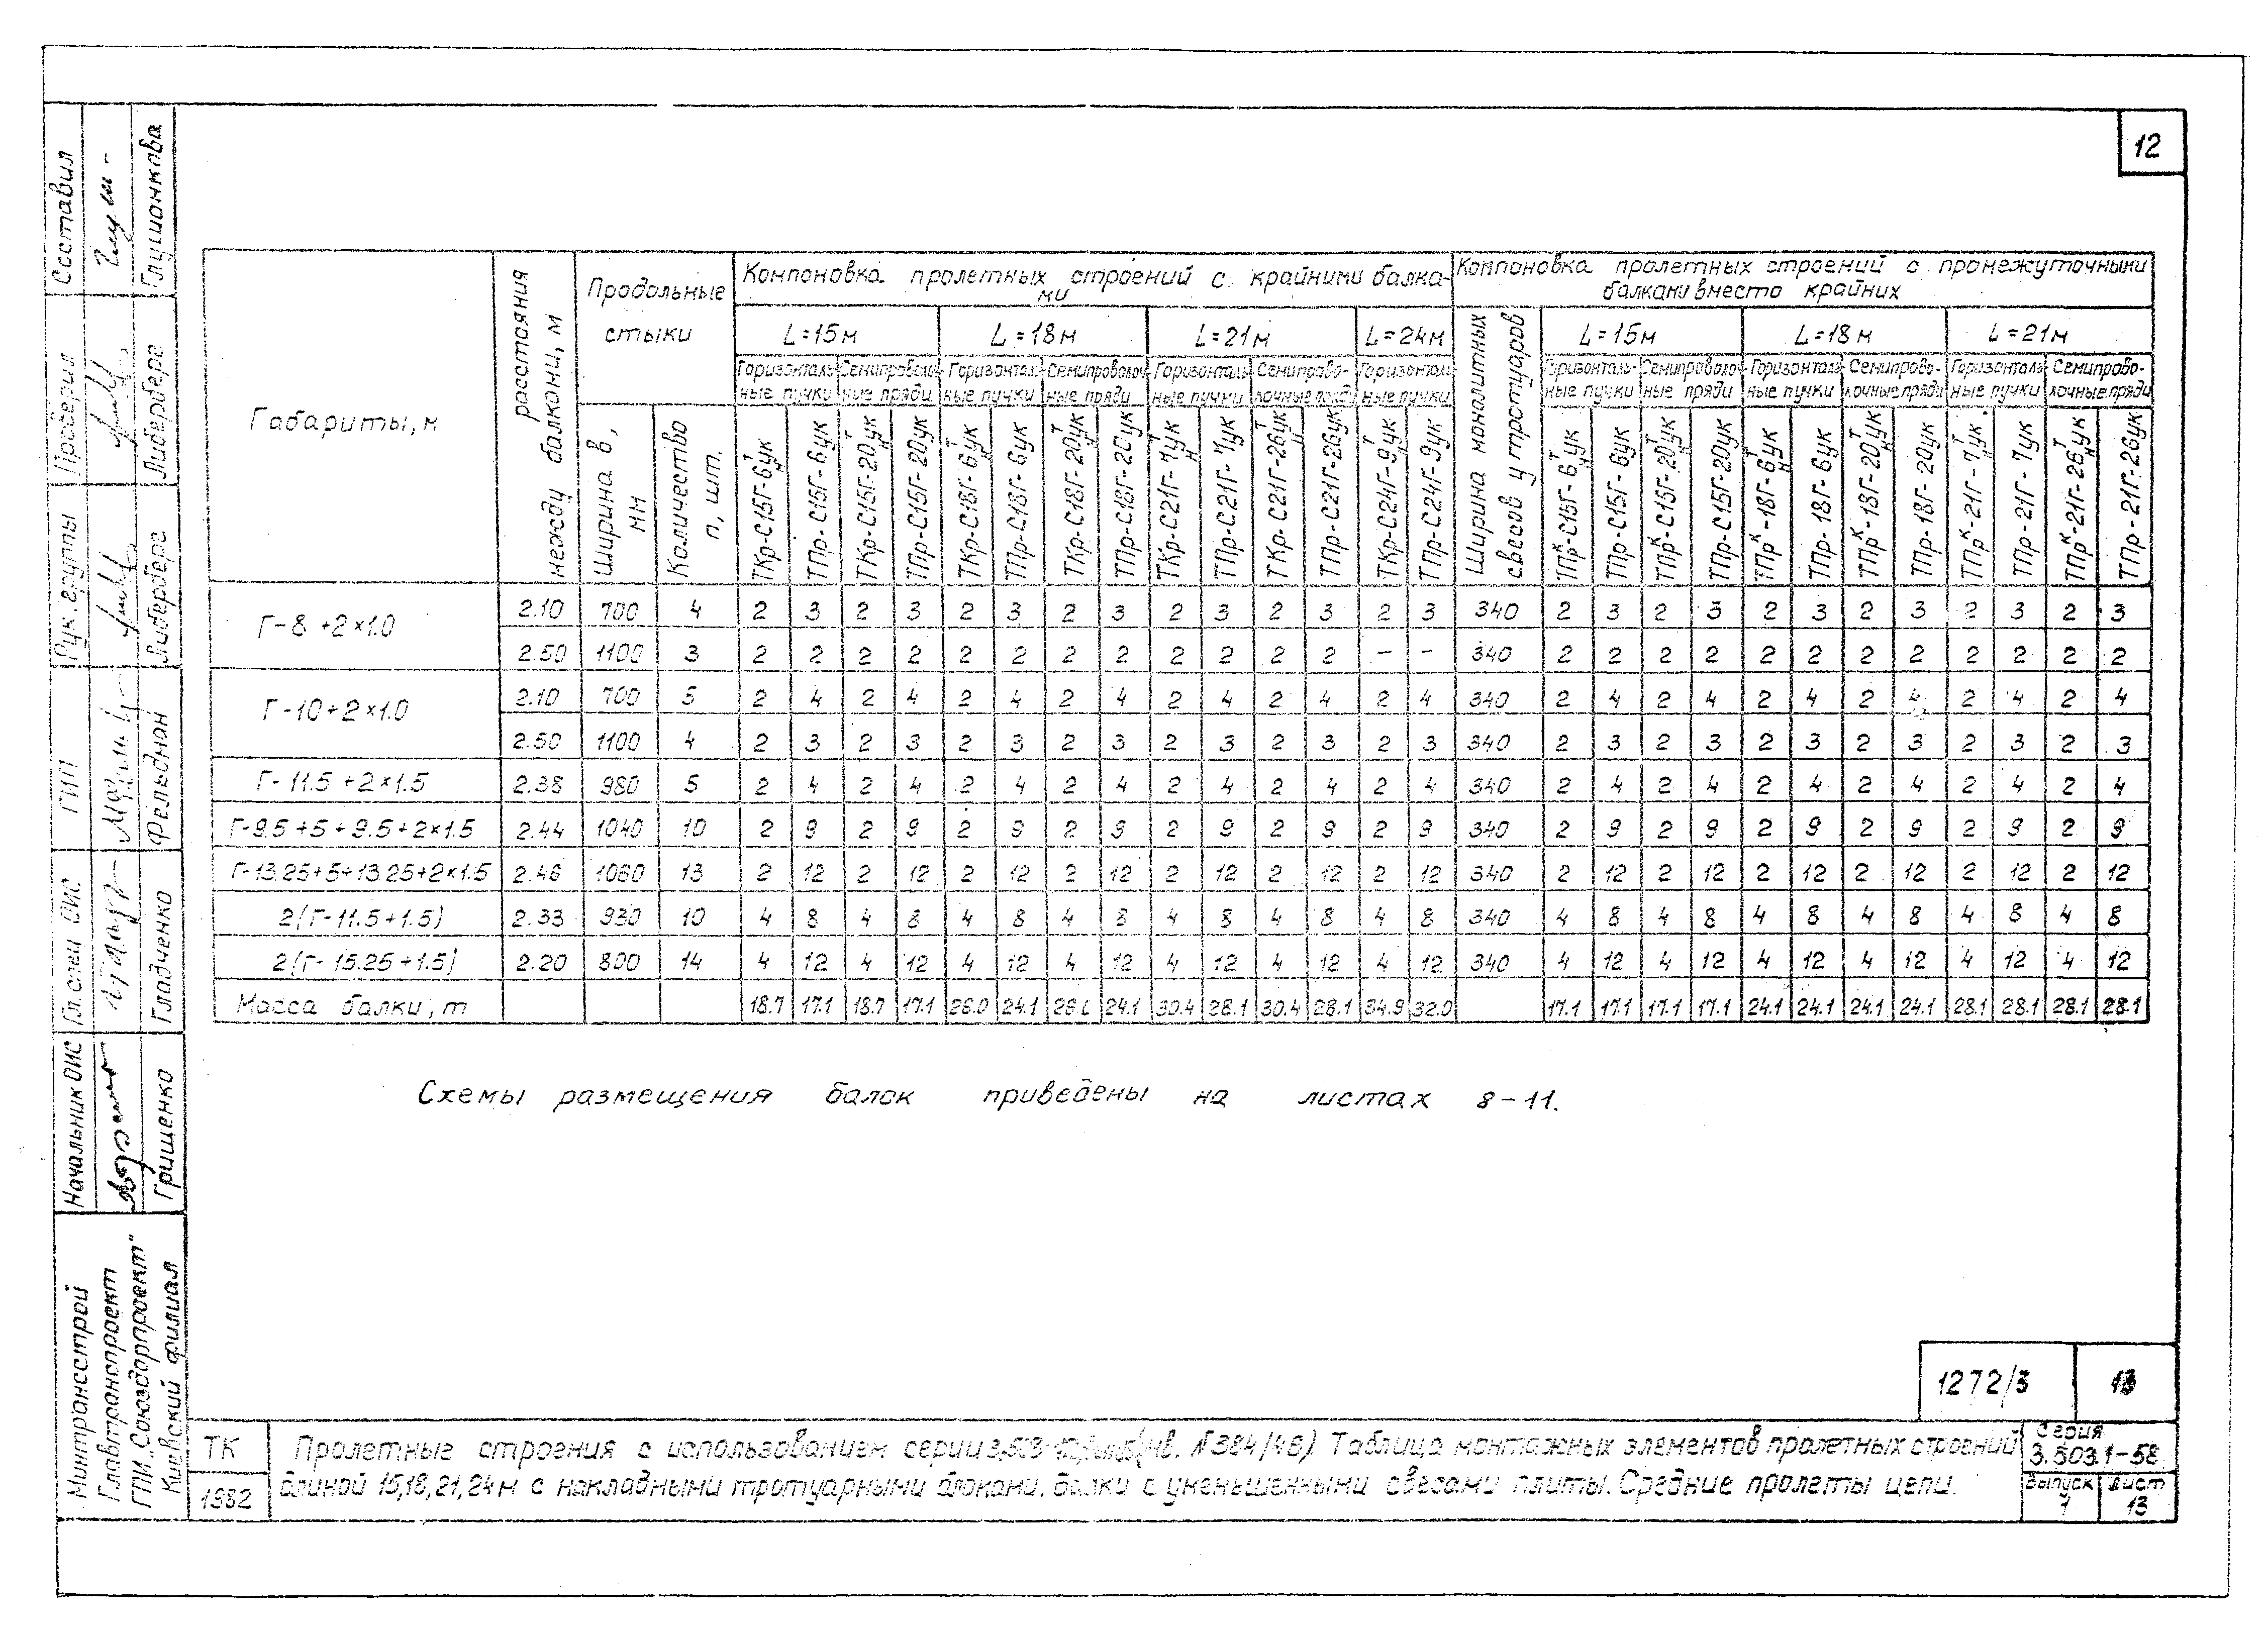 12
Габариты, м
расстояния между балками, м
Продольные стыки
Ширина в, мм
Количество п, шт.
Компоновка пролетных строений с крайними балками
L=15м L=18м L=21м L=24м
Горизонтальные пучки Семипроволочные пряди Горизонтальные пучки Семипроволочные пряди Горизонтальные пучки Семипроволочные пряди Горизонтальные пучки
ТКр-С15Г-6ук ТПр-С15Г-6ук ТКр-С15Г-20ук ТПр-С15Г-20ук ТКр-С18Г-6ук ТПр-С18Г-6ук ТКр-С18Г-20ук ТПр-С18Г-20ук ТКр-С21Г-7ук ТПр-С21Г-7ук ТКр-С21Г-26ук ТПр-С21Г-26ук ТКр-С24Г-9ук ТПр-С24Г-9ук
Компоновка пролетных строений с промежуточными балками вместо крайних
Ширина монолитных свесов у тротуаров
L=15м L=18м L=21м
Горизонтальные пучки Семипроволочные пряди Горизонтальные пучки Семипроволочные пряди Горизонтальные пучки Семипроволочные пряди
ТПрᴷ-С15Г-6ук ТПр-С15Г-6ук ТПрᴷ-С15Г-20ук ТПр-С15Г-20ук ТПрᴷ-18Г-6ук ТПр-18Г-6ук ТПрᴷ-18Г-20ук ТПр-18Г-20ук ТПрᴷ-21Г-7ук ТПр-21Г-7ук ТПрᴷ-21Г-26ук ТПр-21Г-26ук
Г-8+2×1.0 2.10 700 4 2 3 2 3 2 3 2 3 2 3 2 3 2 3 340 2 3 2 3 2 3 2 3 2 3 2 3
2.50 1100 3 2 2 2 2 2 2 2 2 2 2 2 2 – – 340 2 2 2 2 2 2 2 2 2 2 2 2
Г-10+2×1.0 2.10 700 5 2 4 2 4 2 4 2 4 2 4 2 4 2 4 340 2 4 2 4 2 4 2 4 2 4 2 4
2.50 1100 4 2 3 2 3 2 3 2 3 2 3 2 3 2 3 340 2 3 2 3 2 3 2 3 2 3 2 3
Г-11.5+2×1.5 2.38 980 5 2 4 2 4 2 4 2 4 2 4 2 4 2 4 340 2 4 2 4 2 4 2 4 2 4 2 4
Г-9.5+5+9.5+2×1.5 2.44 1040 10 2 9 2 9 2 9 2 9 2 9 2 9 2 9 340 2 9 2 9 2 9 2 9 2 9 2 9
Г-13.25+5+13.25+2×1.5 2.46 1060 13 2 12 2 12 2 12 2 12 2 12 2 12 2 12 340 2 12 2 12 2 12 2 12 2 12 2 12
2(Г-11.5+1.5) 2.33 930 10 4 8 4 8 4 8 4 8 4 8 4 8 4 8 340 4 8 4 8 4 8 4 8 4 8 4 8
2(Г-15.25+1.5) 2.20 800 14 4 12 4 12 4 12 4 12 4 12 4 12 4 12 340 4 12 4 12 4 12 4 12 4 12 4 12
Масса балки, т 18.7 17.1 18.7 17.1 26.0 24.1 24.1 30.4 28.1 30.4 28.1 34.9 32.0 17.1 17.1 17.1 17.1 24.1 24.1 24.1 24.1 28.1 28.1 28.1 28.1
Схемы размещения балок приведены на листах 8–11.
Составил Глушонкова
Проверил Либерберг
Рук. группы Либерберг
ГИП Фельдман
Гл. спец ОИС Гладченко
Начальник ОИС Грищенко
Минтрансстрой
Главтранспроект
ГПИ „Союздорпроект"
Киевский филиал
1272/3 13
ТК
1982
Пролетные строения с использованием серии (инв. №384/46) Таблица монтажных элементов пролетных строений
длиной 15,18,21,24м с накладными тротуарными блоками. Балки с уменьшенными свесами плиты. Средние пролеты цепи.
Серия
3.503.1-58
выпуск лист
1 13